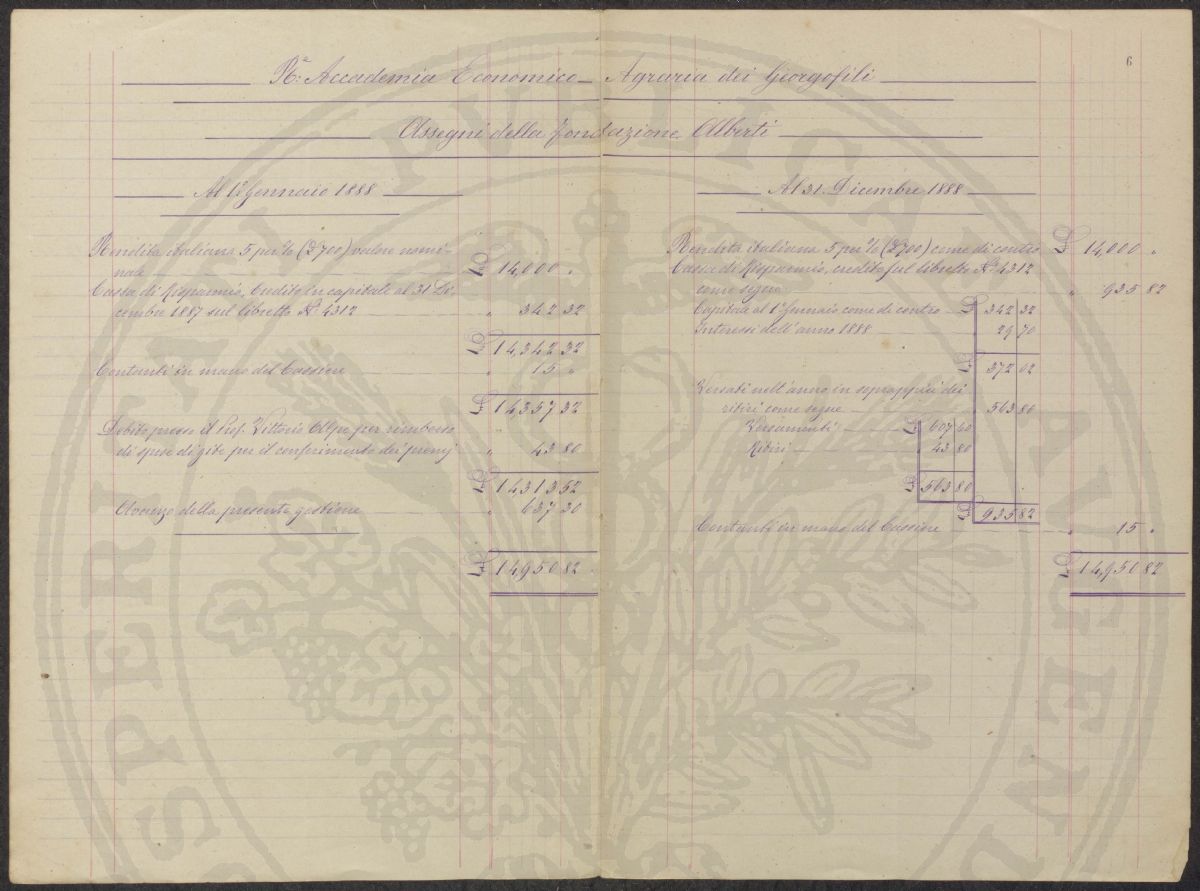 6
R.ª Accademia Economico-Agraria dei Georgofili
Assegni della fondazione Alberti
Al 1º Gennaio 1888
Rendita italiana 5 per % (£ 700) valore nomi-
nale £ 14,000 "
Cassa di Risparmio, Credito in capitale al 31 Di-
cembre 1887 sul libretto Nº 4312 " 342 32
£ 14,342 32
Contanti in mano del Cassiere " 15 "
£ 14357 32
Debito presso il Prof. Vittorio Alpe per rimborso
di spese di gite per il conferimento dei premj " 43 80
£ 14313 52
Avanzo della presente gestione " 637 30
£ 14,950 82
Al 31 Dicembre 1888
Rendita italiana 5 per % (£ 700) come di contro £ 14,000 "
Cassa di Risparmio, credito sul libretto Nº 4312
come segue " 935 82
Capitale al 1º Gennaio come di contro £ 342 32
Interessi dell'anno 1888 " 29 70
£ 372 02
Versati nell'anno in soprappiù dei
ritiri come segue " 563 80
Versamenti £ 607 60
Ritiri " 43 80
£ 563 80
£ 935 82
Contanti in mano del Cassiere " 15 "
£ 14,950 82
PROSPERITATI PVBLICAE AVGENDAE